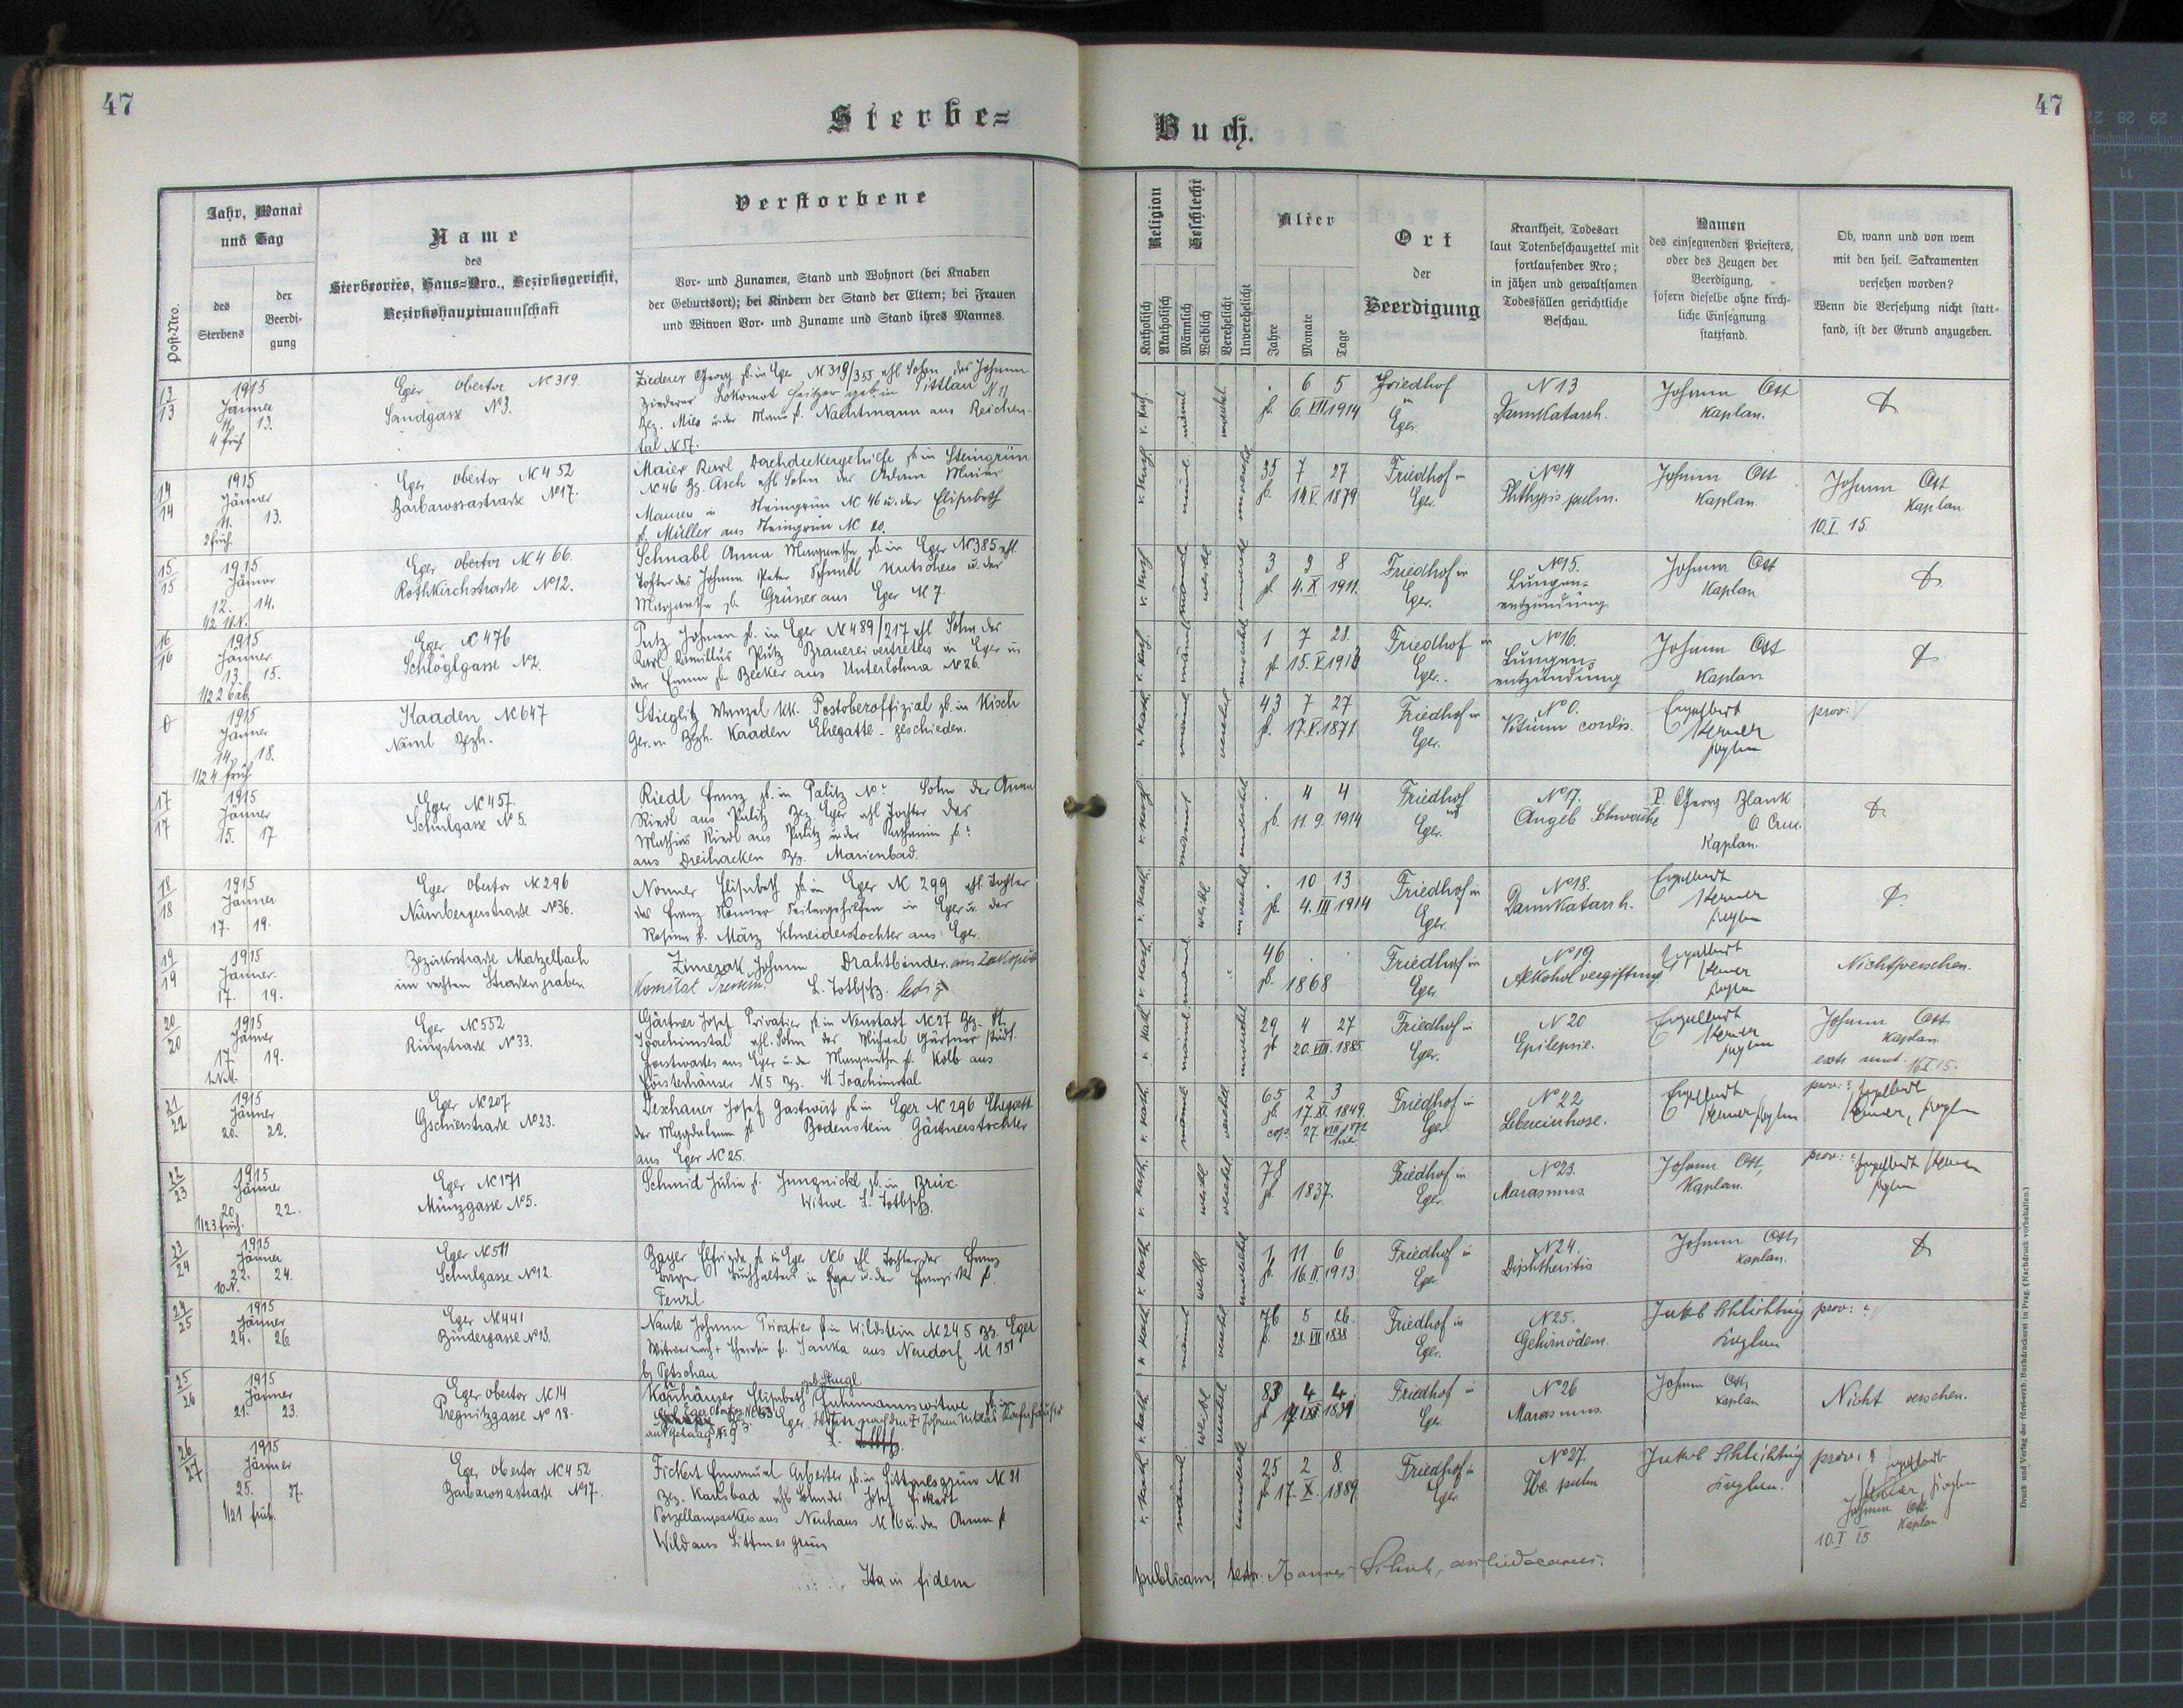 47
47
Sterbe=
Buch.
Post-Nro.
Jahr, Monat
und Tag
des
Sterbens
der
Beerdi-
gung
Name
des
Sterbeortes, Haus=Nro., Bezirksgericht,
Bezirkshauptmannschaft
Verstorbene
Vor- und Zunamen, Stand und Wohnort (bei Knaben
der Geburtsort); bei Kindern der Stand der Eltern; bei Frauen
und Witwen Vor- und Zuname und Stand ihres Mannes.
Religion
Katholisch
Akatholisch
Geschlecht
Männlich
Weiblich
Verehelicht
Unverehelicht
Alter
Jahre
Monate
Tage
Ort
der
Beerdigung
Krankheit, Todesart
laut Totenbeschauzettel mit
fortlaufender Nro;
in jähen und gewaltsamen
Todesfällen gerichtliche
Beschau.
Namen
des einsegnenden Priesters,
oder des Zeugen der
Beerdigung,
sofern dieselbe ohne kirch-
liche Einsegnung
stattfand.
Ob, wann und von wem
mit den heil. Sakramenten
versehen worden?
Wenn die Versehung nicht statt-
fand, ist der Grund anzugeben.
13
13
1915
Jänner
11. 13.
4 früh
Eger Obertor № 319
Sandgasse №3.
Ziederer Georg gb. in Eger № 319/355 ehl Sohn des Johann
Ziederer Lokomot heitzer geb. in Pittlau № 11
Bez. Mies u. der Marie g. Nachtmann aus Reichen-
tal № 57.
6 5
gb. 6. VII 1914
Friedhof
in
Eger
N 13
Darmkatarrh.
Johann Ott
Kaplan.
14
14
1915
Jänner
11. 13.
2 früh
Eger Obertor № 452
Barbarossastraße №17.
Maier Karl Dachdeckergehilfe gb. in Steingrün
№ 46 Bz. Asch ehl Sohn des Adam Maier
Maurer in Steingrün № 46 u. der Elisabeth
g. Müller aus Steingrün № 20.
35 7 27
gb. 14. V. 1879
Friedhof in
Eger.
№14
Phthysis pulm.
Johann Ott
Kaplan.
Johann Ott
Kaplan
10. I. 15.
15
15
1915
Jänner
12. 14.
Eger Obertor № 466.
Rothkirchstraße №12.
Schnabl Anna Margaretha gb. in Eger №385 ehl.
Tochter des Johann Peter Schnabl Kutschers u. der
Margaretha gb. Grüner aus Eger № 7.
3 3 8
gb. 4. X 1911.
Friedhof in
Eger.
№15.
Lungen=
entzündung
Johann Ott
Kaplan
16
16
1915
Jänner
13. 15.
Eger № 476
Schlöglgasse №2.
Putz Johann gb. in Eger № 489/217 ehl Sohn des
Karl Kamillus Putz Brauereivertreters in Eger u
der Emma gb. Becker aus Unterlohma №26.
1 7 28.
gb 15. V. 1913
Friedhof in
Eger.
№16.
Lungen=
entzündung
Johann Ott
Kaplan
1915
Jänner
14. 18.
1/2 4 früh
Kaaden № 647
Bezh.
Stieglitz Wenzel kk. Postoberoffizial gb. in Kisch
Ger. u Bezh. Kaaden Ehegatte - geschieden.
43 7 27
gb. 17. V. 1871
Friedhof in
Eger.
№ 0.
Vitium cordis.
Engelbert
prov:
17
17
1915
Jänner
15. 17
Eger № 457
Schulgasse № 5.
Riedl Franz gb. in Palitz №? Sohn der Anna
Riedl aus Palitz Bez Eger ehl Tochter des
Mathias Riedl aus Palitz u der Katharina g.?
aus Dreihacken Bz. Marienbad.
4 4
gb. 11. 9. 1914
Friedhof
in
Eger.
№17.
Angeb Schwäche
P. Georg Blank
O. Cruc.
Kaplan.
18
18
1915
Jänner
17. 19.
Eger Obertor № 296
Nürnbergerstraße №36.
Nonner Elisabeth gb. in Eger № 299 ehl. Tochter
des Franz Nonner Seilergehilfen in Eger u. der
Rosina g. März Schneiderstochter aus Eger.
10 13
gb. 4. III 1914
Friedhof in
Eger.
№18.
Darmkatarrh.
Engelbert
19
19
1915
Jänner.
17. 19.
Bezirksstraße Matzelbach
im rechten Straßengraben
Zimezak Johann Drahtbinder aus
Komitat Trentin. L. Totbschz. ledig
46
gb. 1868
Friedhof in
Eger
№19.
Alkoholvergiftung
Engelbert
Nicht versehen.
20
20
1915
Jänner
17. 19.
Eger № 552
Ringstraße №33.
Gärtner Josef Privatier gb. in Neustadt №27 Bez. St.
Joachimstal ehl. Sohn des Michael Gärtner städt.
Forstwartes aus Eger u. der Margaretha g. Kolb aus
Försterhäuser №5 Bz. St Joachimstal
29 4 27
gb 20. VIII. 1885
Friedhof in
Eger.
N 20
Epilepsie.
Engelbert
Johann Ott
Kaplan
extr. unct. 16. I. 15.
21
22
1915
Jänner
20. 22.
Eger № 207
Gschierstraße №23.
Deschauer Josef Gastwirt gb. in Eger № 296 Ehegatte
der Magdalena g. Bodenstein Gärtnerstochter
aus Eger № 25.
65 2 3
gb. 17. XI. 1849.
cop. 27. VIII 1872
Friedhof in
Eger
№ 22
Lebercirrhose.
Engelbert
prov: Engelbert
22
23
1915
Jänner
20. 22.
1/2 3 früh.
Eger № 171
Münzgasse №5.
Schmid Julie g. Jungnickl gb. in Brüx.
Witwe L. Totbschz.
78
gb. 1837.
Friedhof in
Eger.
№23.
Marasmus.
Johann Ott,
Kaplan.
prov: Engelbert
23
24
1915
Jänner
22. 24.
10 N.
Eger № 511
Schulgasse №12.
Bayer Elfriede gb. in Eger №6 ehl Tochter des Franz
Bayer Buchhalters in Eger u. der Franziska g.
Fenzl.
1 11 6
gb. 16. II 1913
Friedhof in
Eger
№24.
Diphtheritis
Johann Ott,
Kaplan.
24
25
1915
Jänner
24. 26.
Eger № 441
Bindergasse №13.
Naute Johann Privatier gb. in Wildstein № 245 Bz. Eger
Witwer nach + Theresia g. Janka aus Neudorf № 151
bj Petschau
76 5 26.
28. VII 1838
Friedhof in
Eger.
№25.
Gehirnödem.
Jakob Schlichting
Kaplan
prov:
25
26
1915
Jänner
21. 23.
Eger Obertor № 14
Pregnitzgasse № 18.
geb. Lingl
Kannhäuser Elisabeth Fuhrmannswitwe
83 4 4
Friedhof in
Eger
№26
Marasmus.
Johann Ott,
Kaplan
Nicht versehen.
26
27
1915
Jänner
25. 27.
1/2 1 früh.
Eger Obertor № 452
Barbarossastraße №17.
Fickert Emanuel Arbeiter gb. in Littmesgrün № 21
Bez. Karlsbad ehl Sohn des Josef Fickert
Porzellanpackers aus Neuhaus № 16 u. der Anna g
Wild aus Littmesgrün
25 2 8.
gb. 17. X. 1889
Friedhof in
Eger
№27.
Tbc. pulm
Jakob Schlichting
Kaplan.
prov: Engelbert
Johann Ott
Kaplan
10. I 15
Ita in fidem
publicam testor:
Druck und Verlag der fürsterzb. Buchdruckerei in Prag. (Nachdruck vorbehalten.)